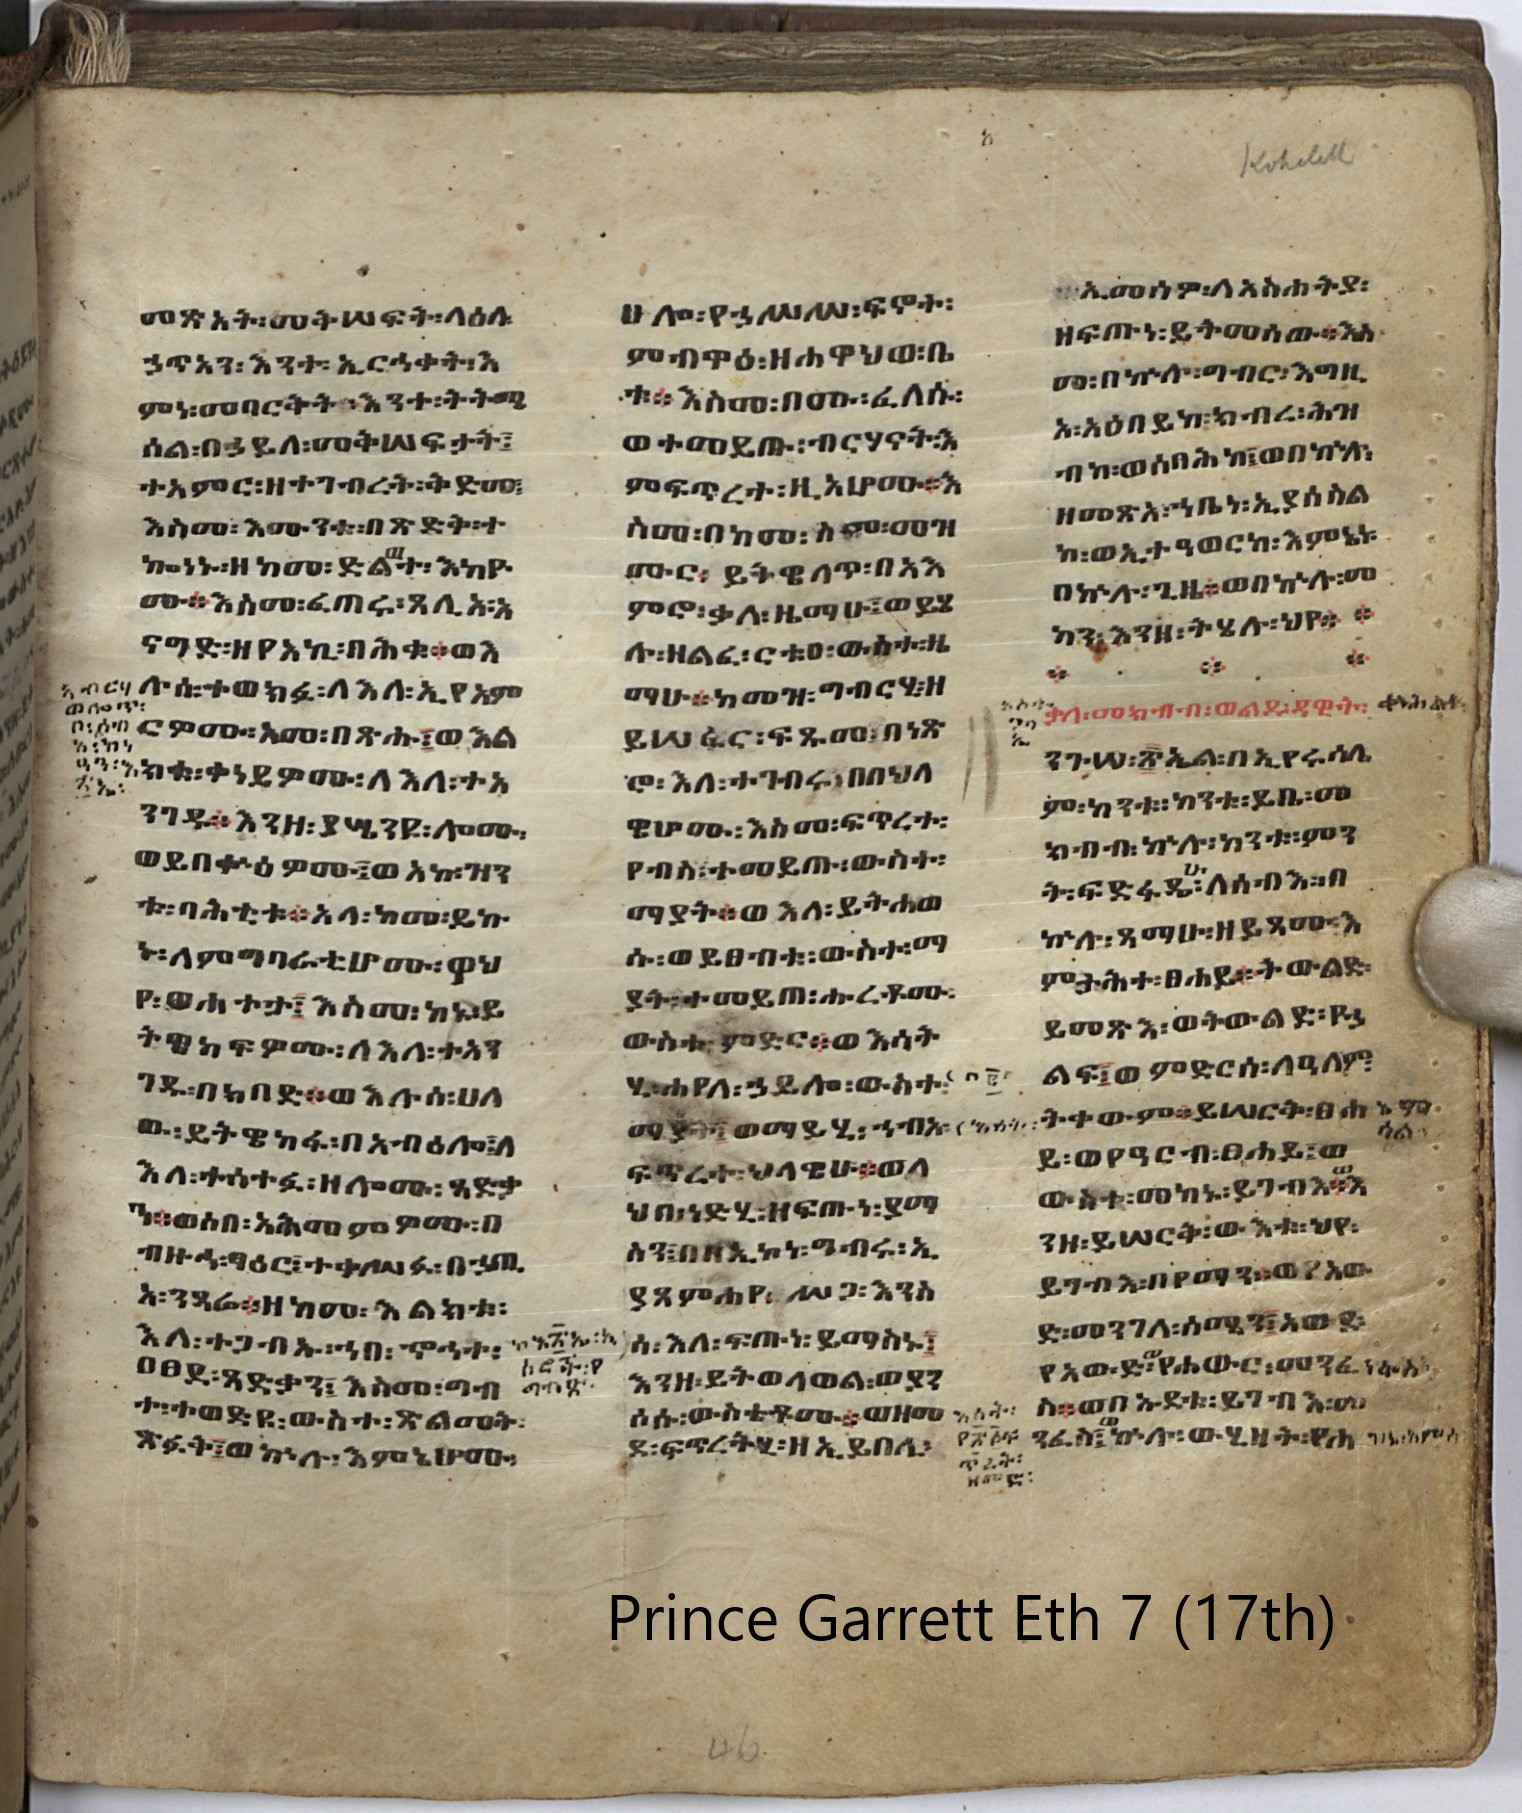 Kohelett
መጽአት፡መቅሠፍት፡ላዕለ
ኃጥአን፡እንተ፡ኢርኅቀት፡እ
ምነ፡መባርቅት፡እንተ፡ትትሜ
ሰል፡በኃይለ፡መቅሠፍታት፤
ተአምር፡ዘተገብረት፡ቅድመ፤
እስመ፡እሙንቱ፡በጽድቅ፡ተ
ኰነኑ፡ዘከመ፡ድልወት፡እከዮ
ሙ፡እስመ፡ፈጠሩ፡ጸሊአ፡አ
ናግድ፡ዘየአኪ፡በሕቁ፡ወእ
ሉሰ፡ተወክፉ፡ለእለ፡ኢየአም
ርዎሙ፡አመ፡በጽሑ፤ወእል
ክቱ፡ቀነይዎሙ፡ለእለ፡ተአ
ንገዱ፡እንዘ፡ያሤንዩ፡ሎሙ፡
ወይበቍዕዎሙ፤ወአኮ፡ዝን
ቱ፡ባሕቲቱ፡አላ፡ከመ፡ይኩ
ኑ፡ለምግባራቲሆሙ፡ዋህ
የ፡ወሐተታ፤እስመ፡ከኑ፡ይ
ትዌከፍዎሙ፡ለእለ፡ተአን
ገዱ፡በክበድ፡ወእሉሰ፡ሀለ
ዉ፡ይትዌከፉ፡በአብዕሎ፤ለ
እለ፡ተሳተፉ፡ዘሎሙ፡ጻድቃ
ኀ፡ወሰበ፡አሕመምዎሙ፡በ
ብዙኃ፡ፃዕር፤ተቀሠፉ፡በኃጢ
አ፡ንጻሬ፡ዘከመ፡እልክቱ፡
እለ፡ተጋብኡ፡ኀበ፡ኆኅተ፡
ዐፀደ፡ጻድቃን፤እስመ፡ግብ
ተ፡ተወድዩ፡ውስተ፡ጽልመት፡
ጽፉት፤ወኵሉ፡እምኔሆሙ፡
ሀሎ፡የኃሥሥ፡ፍኖተ፡
ምብዋዕ፡ዘሐዋህወ፡ቤ
ቱ፡እስመ፡በሙ፡ፈለሱ፡
ወተመይጡ፡ብርሃናት፡እ
ምፍጥረት፡ዚአሆሙ፡እ
ስመ፡በከመ፡ስም፡መዝ
ሙር፡ይትዌለጥ፡በአእ
ምሮ፡ቃለ፡ዜማሁ፤ወይሄ
ሉ፡ዘልፈ፡ርቱዐ፡ውስተ፡ዜ
ማሁ፡ከመዝ፡ግብርሂ፡ዘ
ይሠፈር፡ፍጹመ፡በነጽ
ሮ፡እለ፡ተገብሩ፡በበህላ
ዌሆሙ፡እስመ፡ፍጥረተ፡
የብስ፡ተመይጡ፡ውስተ፡
ማያት፡ወእለ፡ይትሐወ
ሱ፡ወይፀብቱ፡ውስተ፡ማ
ያት፡ተመይጠ፡ሑረቶሙ፡
ውስተ፡ምድር፡ወእሳት
ሂ፡ሐየለ፡ኃይሎ፡ውስተ፡
ማያት፤ወማይሂ፡ኀብአ፡
ፍጥረተ፡ህላዌሁ፡ወለ
ህበ፡ነድሂ፡ዘፍጡነ፡ያማ
ስን፤በዘኢኮነ፡ግብሩ፡ኢ
ያጸምሐየ፡ሥጋ፡እንስ
ሳ፡እለ፡ፍጡነ፡ይማስኑ፤
እንዘ፡ይትወላወል፡ወያን
ሰሱ፡ውስቴቶሙ፡ወዘመ
ደ፡ፍጥረትሂ፡ዘኢይበለ፡
ኢመሰዎ፡ለአስሐትያ፡
ዘፍጡነ፡ይትመሰው፡እስ
መ፡በኵሉ፡ግብር፡እግዚ
አ፡አዕበይከ፡ክብረ፡ሕዝ
ብከ፡ወሰባሕከ፤ወበኵሉ፡
ዘመጽአ፡ኀቤነ፡ኢያሰስል
ከ፡ወኢተዓወርከ፡እምኔነ፡
በኵሉ፡ጊዜ፡ወበኵሉ፡መ
ካን፡እንዘ፡ትሄሉ፡ህየ፡
ቃለ፡መክብብ፡ወልደ፡ዳዊት፡
ንጉሠ፡፳ኤል፡በኢየሩሳሌ
ም፡ከንቱ፡ከንቱ፡ይቤ፡መ
ክብብ፡ኵሉ፡ከንቱ፡ምን
ት፡ፍድፋዴሁ፡ለሰብእ፡በ
ኵሉ፡ጻማሁ፡ዘይጻሙ፡እ
ምታሕተ፡ፀሐይ፡ትውልድ፡
ይመጽእ፡ወትውልድ፡የኃ
ልፍ፤ወምድርሰ፡ለዓለም፡
ትቀውም፡ይሠርቅ፡ፀሐ
ይ፡ወየዓርብ፡ፀሐይ፤ወ
ውስተ፡መካኑ፡ይገብእ፡እ
ንዘ፡ይሠርቅ፡ውእቱ፡ህየ፡
ይገብእ፡በየማን፡ወየአው
ድ፡መንገለ፡ሰሜን፤አውደ፡
የአውድ፡የሐውር፡መንፈ
ስ፡ወበኡደቱ፡ይገብእ፡መ
ንፈስ፤ኵሉ፡ውሂዘት፡የሐ
46
Prince Garrett Eth 7 (17th)